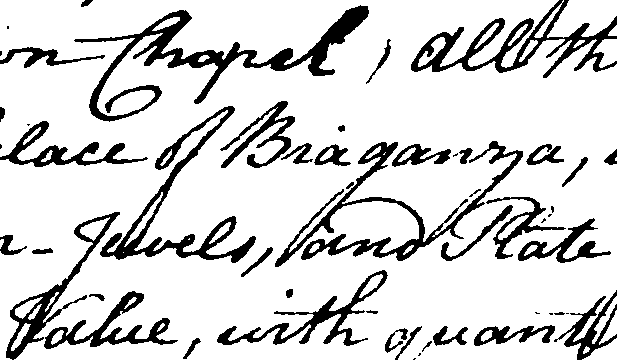 on Chapel, all th
lace of Braganza,
n-Jewels, and Plate
Value, with quant